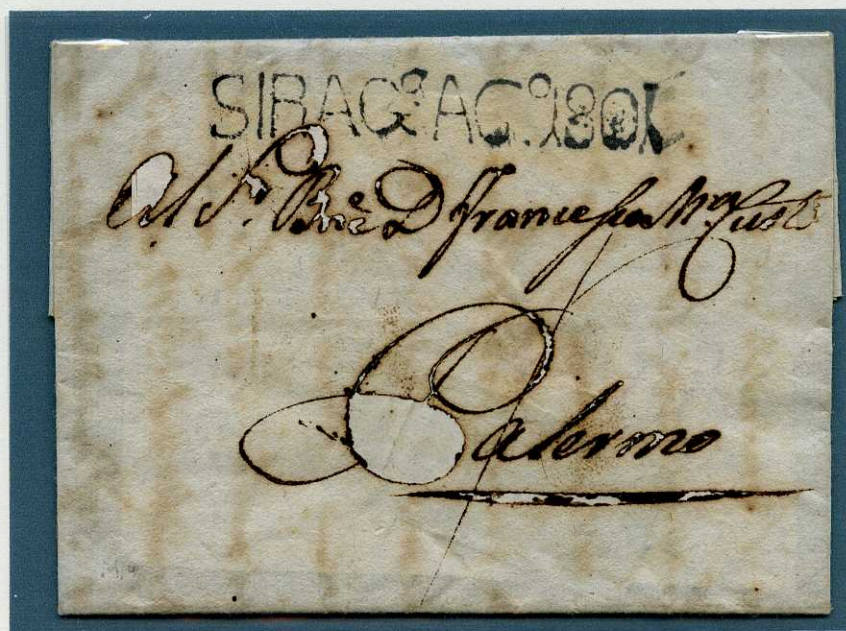 SIRAC.ª AG.º 1801
Al S.r B.ne D Francesco M.a
Palermo